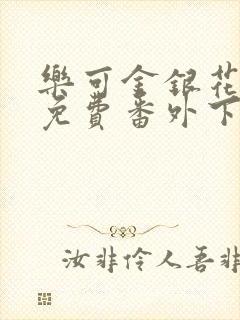 樂可金銀花
免費番外下
汝非伶人吾非